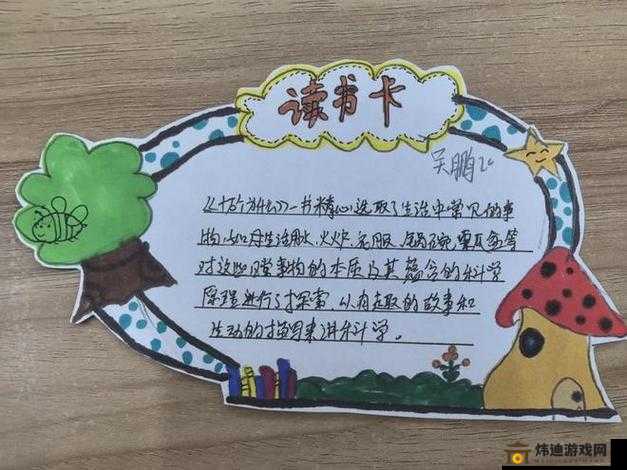 读书卡
吴鹏
《十万个为什么》一书精心选取了生活中常见的事
物,如日生活用水、火炉、衣服、锅碗瓢盆等
对这些日常事物的本质及其蕴含的科学
原理进行了探索,以有趣的故事和
生动的描写来讲科学。
炜迪游戏网